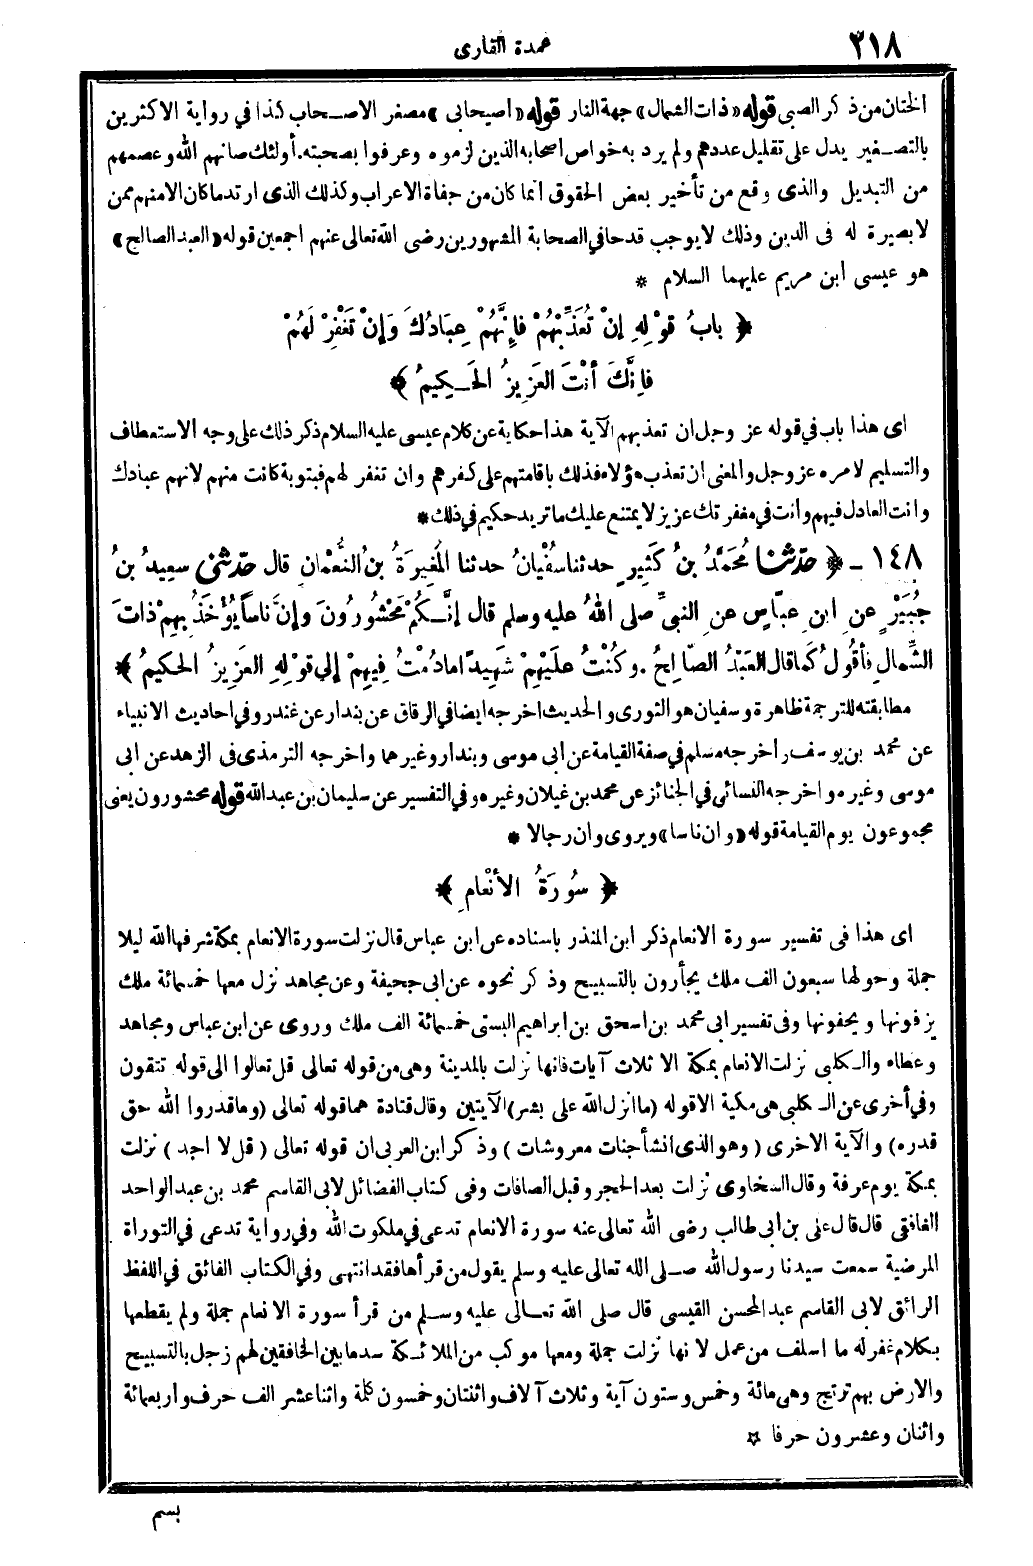 ٢١٨
عمدة القارى
الختان من ذكر الصبى قوله «ذات الشمال» جهة النار قوله «اصيحابى» مصغر الاصحاب كذا في رواية الاكثرين
بالتصغير يدل على تقليل عددهم ولم يرد به خواص اصحابه الذين لزموه وعرفوا بصحبته. أولئك صانهم الله وعصمهم
من التبديل والذى وقع من تأخير بعض الحقوق انما كان من جفاة الاعراب وكذلك الذى ارتد ما كان الا منهم ممن
لا بصيرة له فى الدين وذلك لا يوجب قدحا في الصحابة المشهورين رضى الله تعالى عنهم اجمعين قوله «العبد الصالح»
هو عيسى ابن مريم عليهما السلام *
﴿ بابُ قوْلِهِ إنْ تُعَذِّبْهُمْ فإِنَّهُمْ عِبَادُكَ وَإنْ تَغْفِرْ لَهُمْ
فإِنَّكَ أنْتَ العَزِيزُ الحَكِيمُ ﴾
اى هذا باب في قوله عز وجل ان تعذبهم الآية هذا حكاية عن كلام عيسى عليه السلام ذكر ذلك على وجه الاستعطاف
والتسليم لامره عز وجل والمعنى ان تعذب هؤلاء فذلك باقامتهم على كفرهم وان تغفر لهم فبتوبة كانت منهم لانهم عبادك
وانت العادل فيهم وانت في مغفرتك عزيز لا يمتنع عليك ما تريد حكيم في ذلك *
١٤٨ - ﴿ حدّثنا مُحَمَّدُ بنُ كَثِيرٍ حدثنا سُفْيانُ حدثنا المُغِيرَةُ بنُ النُّعْمانِ قال حدّثنى سعِيدُ بنُ
جُبَيْرٍ عنِ ابنِ عبّاسٍ عنِ النبىِّ صلى اللهُ عليه وسلم قال إنَّكُمْ مَحْشُورُونَ وإنَّ ناساً يُؤْخَذُ بِهِمْ ذاتَ
الشِّمالِ فأقُولُ كما قال العَبْدُ الصّالِحُ. وكُنْتُ علَيْهِمْ شَهِيداً ما دُمْتُ فِيهِمْ إلى قوْلِهِ العَزِيزُ الحكِيمُ ﴾
مطابقته للترجمة ظاهرة وسفيان هو الثورى والحديث اخرجه ايضا في الرقاق عن بندار عن غندر وفي احاديث الانبياء
عن محمد بن يوسف واخرجه مسلم في صفة القيامة عن ابى موسى وبندار وغيرهما واخرجه الترمذى فى الزهد عن ابى
موسى وغيره واخرجه النسائى في الجنائز عن محمد بن غيلان وغيره وفي التفسير عن سليمان بن عبد الله قوله محشورون يعنى
مجموعون يوم القيامة قوله «وان ناسا» ويروى وان رجالا *
﴿ سُورَةُ الأنْعامِ ﴾
اى هذا فى تفسير سورة الانعام ذكر ابن المنذر باسناده عن ابن عباس قال نزلت سورة الانعام بمكة شرفها الله ليلا
جملة وحولها سبعون الف ملك يجأرون بالتسبيح وذكر نحوه عن ابى جحيفة وعن مجاهد نزل معها خمسمائة ملك
يزفونها ويحفونها وفى تفسير ابى محمد بن اسحق بن ابراهيم البستى خمسمائة الف ملك وروى عن ابن عباس ومجاهد
وعطاء والكلبى نزلت الانعام بمكة الا ثلاث آيات فانها نزلت بالمدينة وهى من قوله تعالى قل تعالوا الى قوله تتقون
وفي أخرى عن الكلبى هى مكية الا قوله (ما انزل الله على بشر) الآيتين وقال قتادة هما قوله تعالى (وما قدروا الله حق
قدره) والآية الاخرى (وهو الذى انشأ جنات معروشات) وذكر ابن العربى ان قوله تعالى (قل لا اجد) نزلت
بمكة يوم عرفة وقال السخاوى نزلت بعد الحجر وقبل الصافات وفى كتاب الفضائل لابى القاسم محمد بن عبد الواحد
الغافقى قال قال على بن أبى طالب رضى الله تعالى عنه سورة الانعام تدعى في ملكوت الله وفي رواية تدعى في التوراة
المرضية سمعت سيدنا رسول الله صلى الله تعالى عليه وسلم يقول من قرأها فقد انتهى وفي الكتاب الفائق في اللفظ
الرائق لابى القاسم عبد المحسن القيسى قال صلى الله تعالى عليه وسلم من قرأ سورة الانعام جملة ولم يقطعها
بكلام غفر له ما اسلف من عمل لانها نزلت جملة ومعها موكب من الملائكة سد ما بين الخافقين لهم زجل بالتسبيح
والارض بهم ترتج وهى مائة وخمس وستون آية وثلاث آلاف واثنتان وخمسون كلمة واثنا عشر الف حرف واربعمائة
واثنان وعشرون حرفا ☆
بسم